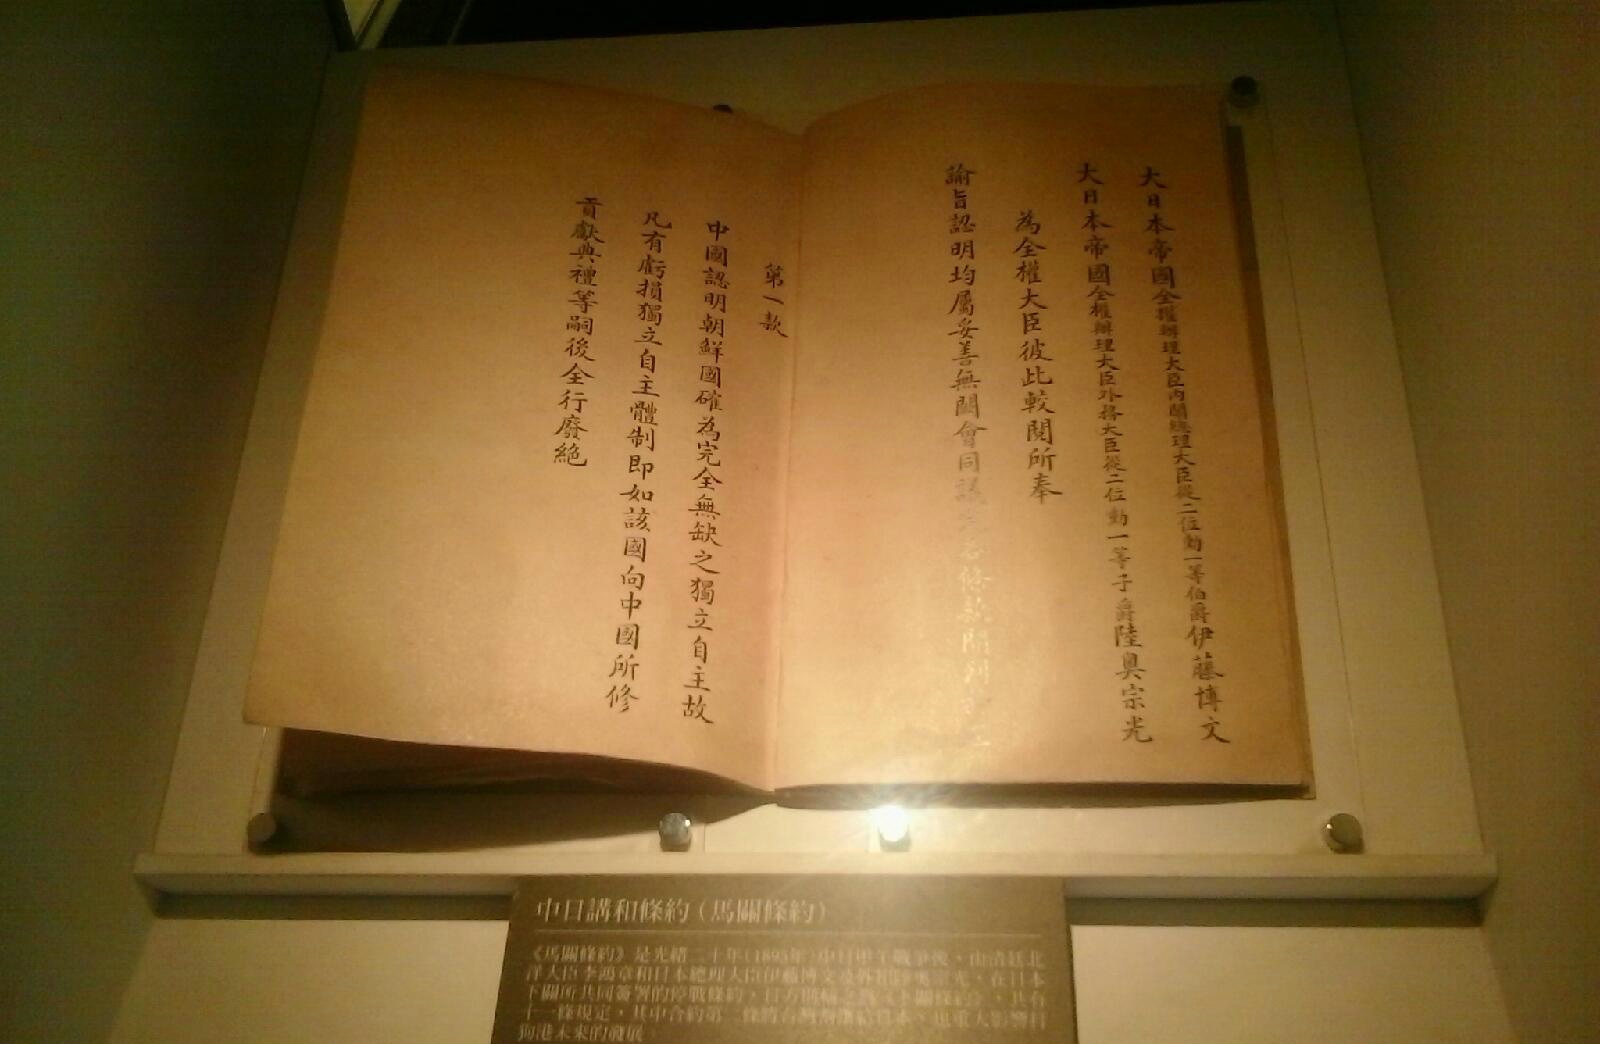 大日本帝國全權辦理大臣內閣總理大臣從二位勳一等伯爵伊藤博文
大日本帝國全權辦理大臣外務大臣從二位勳一等子爵陸奧宗光
為全權大臣彼此較閱所奉
諭旨認明均屬妥善無闕會同議定各條款開列
第一款
中國認明朝鮮國確為完全無缺之獨立自主故
凡有虧損獨立自主體制即如該國向中國所修
貢獻典禮等嗣後全行廢絕
中日講和條約（馬關條約）
《馬關條約》是光緒二十年(1895年)中日甲午戰爭後，由清廷北
洋大臣李鴻章和日本總理大臣伊藤博文及外相陸奧宗光，在日本
下關所共同簽署的停戰條約，日方則稱之為《下關條約》，共有
十一條規定，其中合約第二條將台灣割讓給日本，也重大影響打
狗港未來的發展。